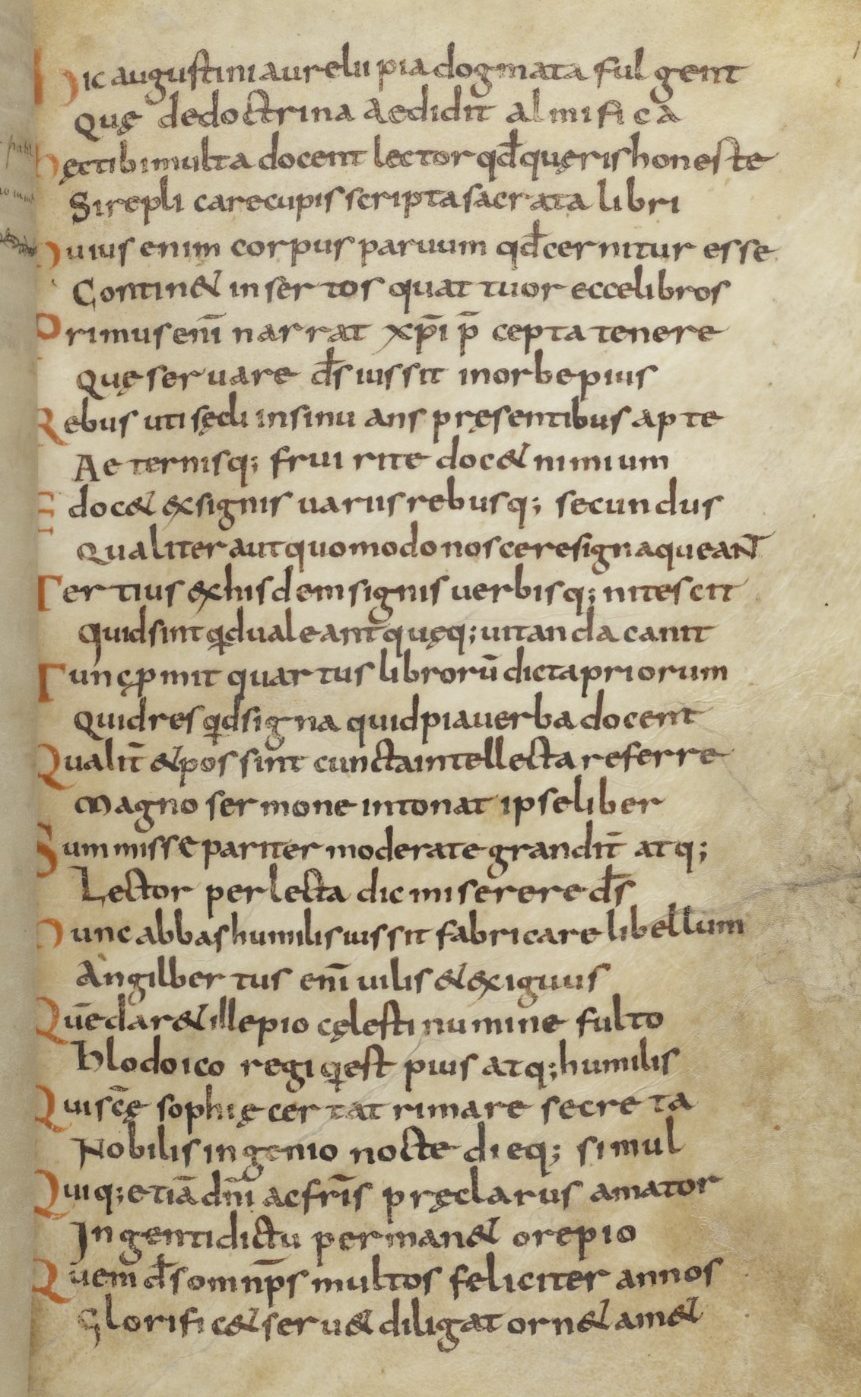 Hic augustini aurelii pia dogmata fulgent
Quę de doctrina aedidit almifica
Hęc tibi multa docent lector qđ quęris honeste
Si replicare cupis scripta sacrata libri
Huius enim corpus paruum qđ cernitur esse
Continet insertos quattuor ecce libros
Primus enī narrat xp̄i p̄cepta tenere
Quę seruare d̄s iussit in orbe pius
Rebus uti sęcli insinuans pręsentibus apte
Aeternisq; frui rite docet nimium
Edocet ex signis uariis rebusq; secundus
Qualiter aut quomodo noscere signa queant
Tertius ex hisdem signis uerbisq; nitescit
Quid sint qd ualeant quęq; uitanda canit
Tunc p̄mit quartus librorū dicta priorum
Quid res qd signa quid pia uerba docent
Qualit̄ et possint cuncta intellecta referre
Magno sermone intonat ipse liber
Summisse pariter moderate grandit̄ atq;
Lector perlecta dic miserere d̄s
Hunc abbas humilis iussit fabricare libellum
Angilbertus enī uilis et exiguus
Quē daret ille pio cęlesti numine fulto
Hlodoico regi q̄ est pius atq; humilis
Qui scē sophię certat rimare secreta
Nobilis ingenio nocte dieq; simul
Quiq; etiā dn̄i ac fr̄is pręclarus amator
Ingenti dictu permanet ore pio
Quem d̄s omnp̄s multos feliciter annos
Glorificet seruet diligat ornet amet